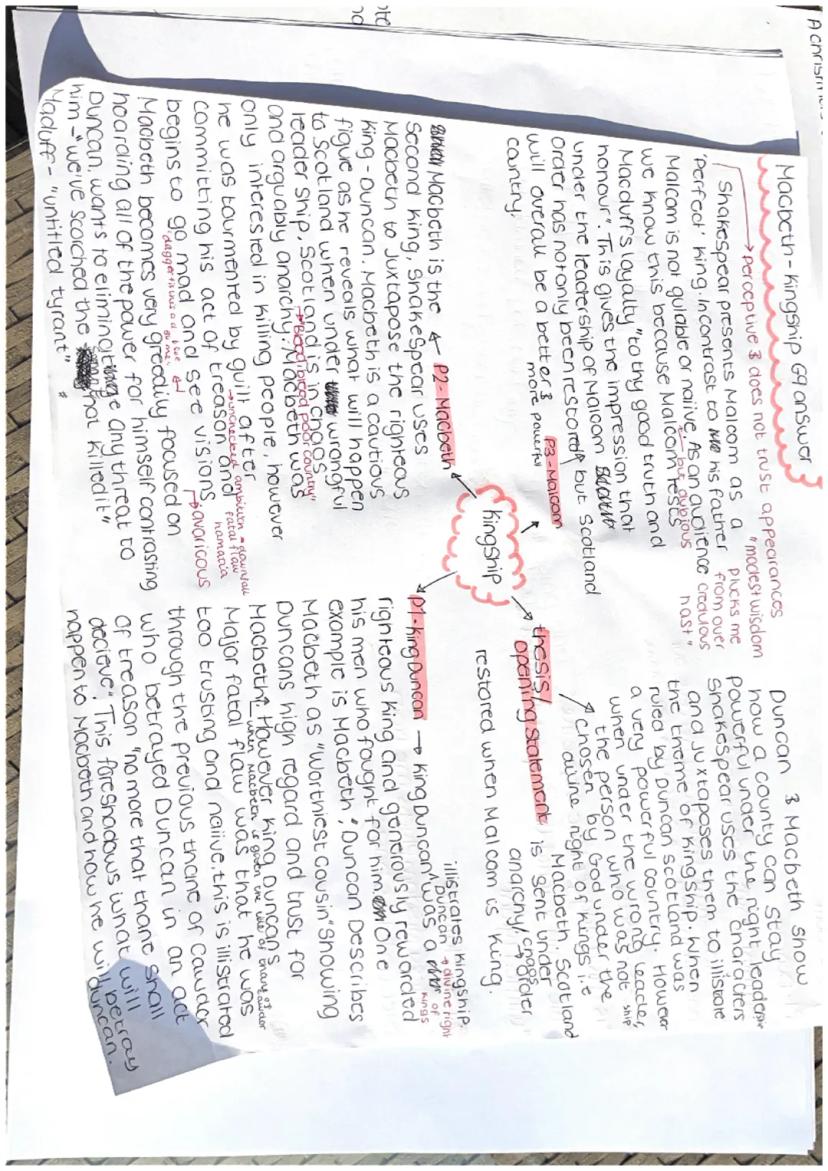 A christmas
Macbeth - Kingship G9 answer
→ perceptive & does not trust appearances
Shakespear presents Malcom as a
"modest wisdom
'perfect' king, incontrast to his father
plucks me
from over
Malcom is not gulable or naiive. As an audience
credulous
we know this because Malcom tests
hast"
Macduffs loyalty "to thy good truth and
honour". This gives the impression that
under the leadership of Malcom
Order has not only been restored, but Scotland
will overall be a better &
more powerful
country.
P3 - Malcom
kingship
thesis/
opening statement
Duncan & Macbeth show
how a county can stay
powerful under the right leadership
Shakespear uses the characters
and juxtaposes them to illistrate
the theme of kingship. When
ruled by Duncan Scotland was
a very powerful country. However
when under the wrong leader,
ship
the person who was not
chosen by God under the
divine right of kings i.e
Macbeth. Scotland
is sent under
chaos
anarchy, → order
restored when Malcom is King.
P2 - Macbeth
Macbeth is the
Second king, Shakespear uses
Macbeth to juxtapose the righteous
king - Duncan. Macbeth is a cautious
figue as he reveals what will happen
to Scotland when under wrongful
leader ship, Scotland is in chaos
→ "Bleed bleed poor country"
and arguably anarchy. Macbeth was
only interested in killing people, however
he was tourmented by guilt after
→ unchecked ambition → downfall
fatal flaw
hamartia
committing his act of treason and
begins to go mad and see visions
"dagger is this a I see
→ avaricious
Macbeth becomes very greedily focused on
hoarding all of the power for himself contrasting
Duncan, wants to eliminate any threat to
him - "we've scorched the that killed it"
Macduff - "untitled tyrant"
P1 - King Duncan
→ King Duncan was a
illistrates kingship,
Duncan → divine right
of
kings
righteous king and generously rewarded
his men who fought for him, One
example is Macbeth, Duncan Describes
Macbeth as "Worthiest cousin" Showing
Duncans high regard and trust for
Macbeth. However King Duncan's
when Macbeth is given the title of thane of cawdor
Major fatal flaw was that he was
too trusting and naiive, this is illistrated
through the previous thane of Cawdor
who betrayed Duncan in an act
of treason "no more that thane shall
decieve". This foreshadows what will
happen to Macbeth and how he will betray
duncan.